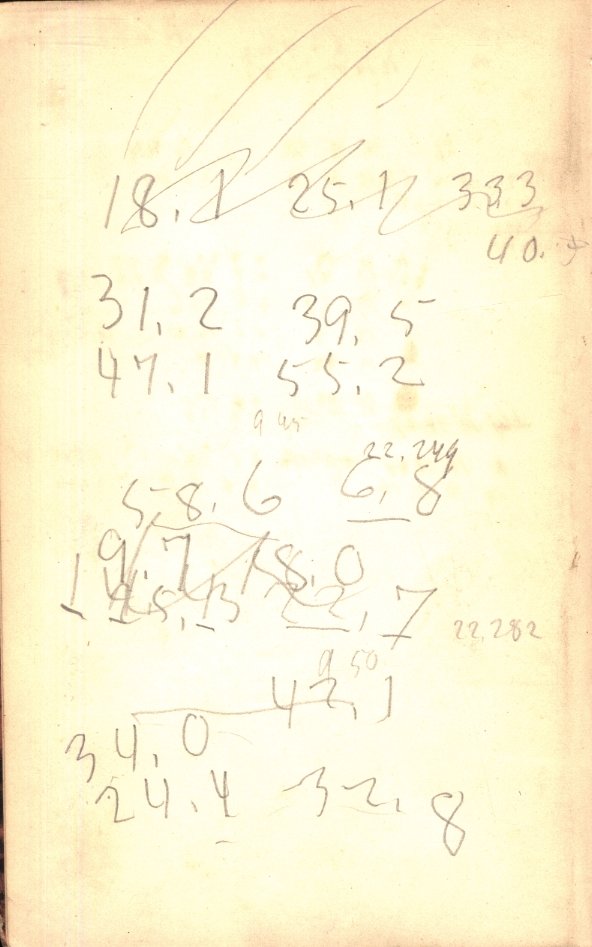 18.1 25.1 33.3
40.
31,2 39,5
47.1 55.2
9 45
22,249
58.6 6,8
9.7 18.0
22,7
22,282
9 50
42,1
34,0
24.4 32.8